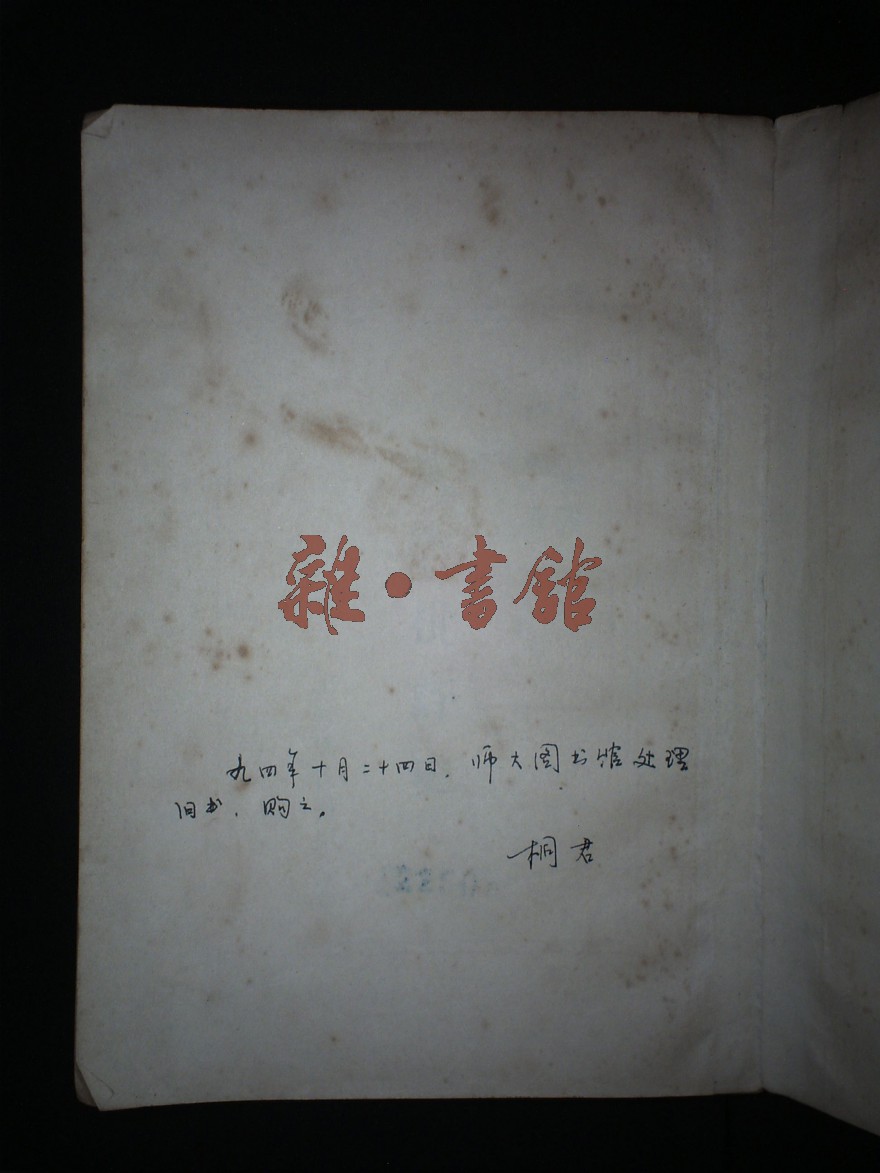 雜·書館
九四年十月二十四日，师大图书馆处理
旧书，购之。
桐君